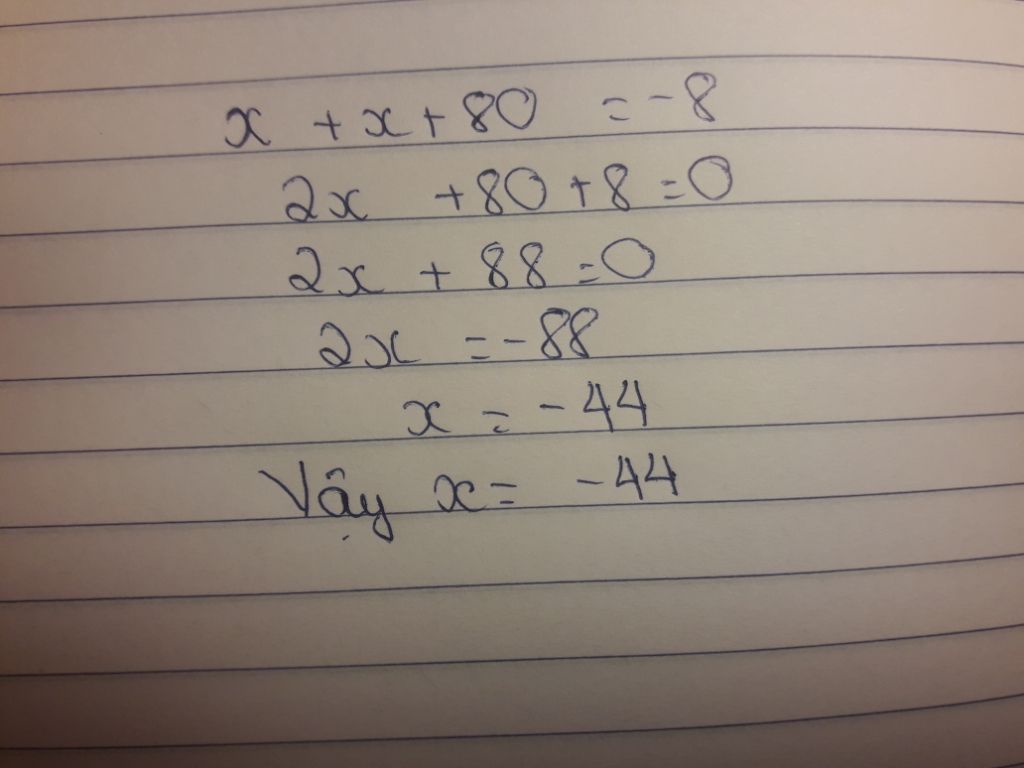 x + x + 80 = -8
2x + 80 + 8 = 0
2x + 88 = 0
2x = -88
x = -44
Vậy x = -44